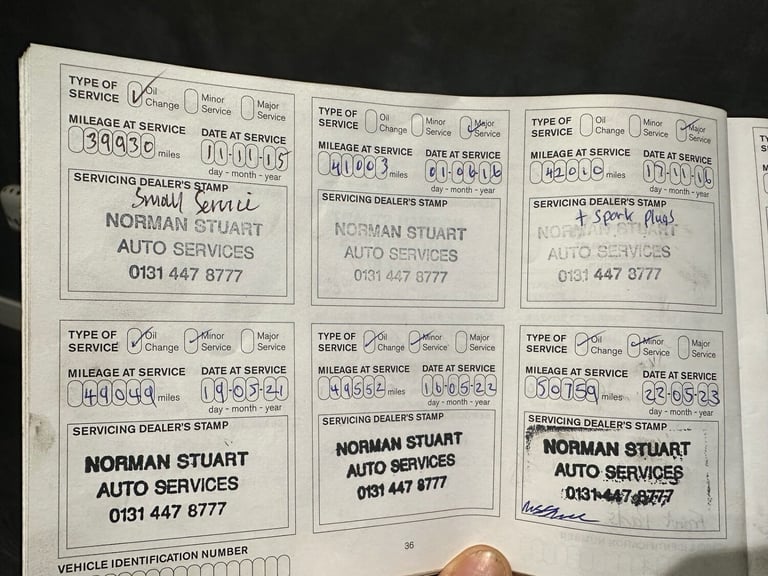 TYPE OF SERVICE ✓ Oil Change Minor Service Major Service
MILEAGE AT SERVICE DATE AT SERVICE
39930 miles 11-11-15
day - month - year
SERVICING DEALER'S STAMP
Small Service
NORMAN STUART
AUTO SERVICES
0131 447 8777
TYPE OF SERVICE Oil Change Minor Service ✓ Major Service
MILEAGE AT SERVICE DATE AT SERVICE
41003 miles 01-06-16
day - month - year
SERVICING DEALER'S STAMP
NORMAN STUART
AUTO SERVICES
0131 447 8777
TYPE OF SERVICE Oil Change Minor Service ✓ Major Service
MILEAGE AT SERVICE DATE AT SERVICE
42010 miles 17-11-16
day - month - year
SERVICING DEALER'S STAMP
+ spark plugs
NORMAN STUART
AUTO SERVICES
0131 447 8777
TYPE OF SERVICE ✓ Oil Change ✓ Minor Service Major Service
MILEAGE AT SERVICE DATE AT SERVICE
49049 miles 19-05-21
day - month - year
SERVICING DEALER'S STAMP
NORMAN STUART
AUTO SERVICES
0131 447 8777
TYPE OF SERVICE ✓ Oil Change ✓ Minor Service Major Service
MILEAGE AT SERVICE DATE AT SERVICE
49552 miles 16-05-22
day - month - year
SERVICING DEALER'S STAMP
NORMAN STUART
AUTO SERVICES
0131 447 8777
TYPE OF SERVICE ✓ Oil Change ✓ Minor Service Major Service
MILEAGE AT SERVICE DATE AT SERVICE
50759 miles 22-05-23
day - month - year
SERVICING DEALER'S STAMP
NORMAN STUART
AUTO SERVICES
0131 447 8777
VEHICLE IDENTIFICATION NUMBER
36